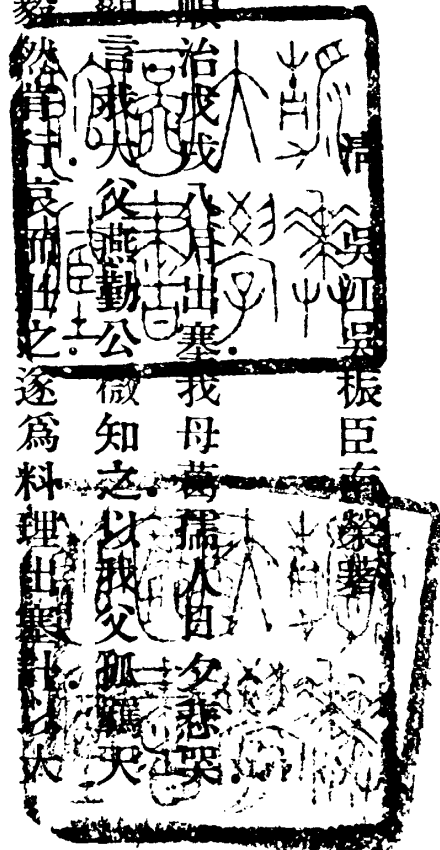 清 吳江吳桭臣南榮著
順治戊戌八月出塞我母葛孺人日夕悲哭
言我大父燕勤公微知之以我父孤羈天
毅然肯行哀而壯之遂爲料理出塞計以大